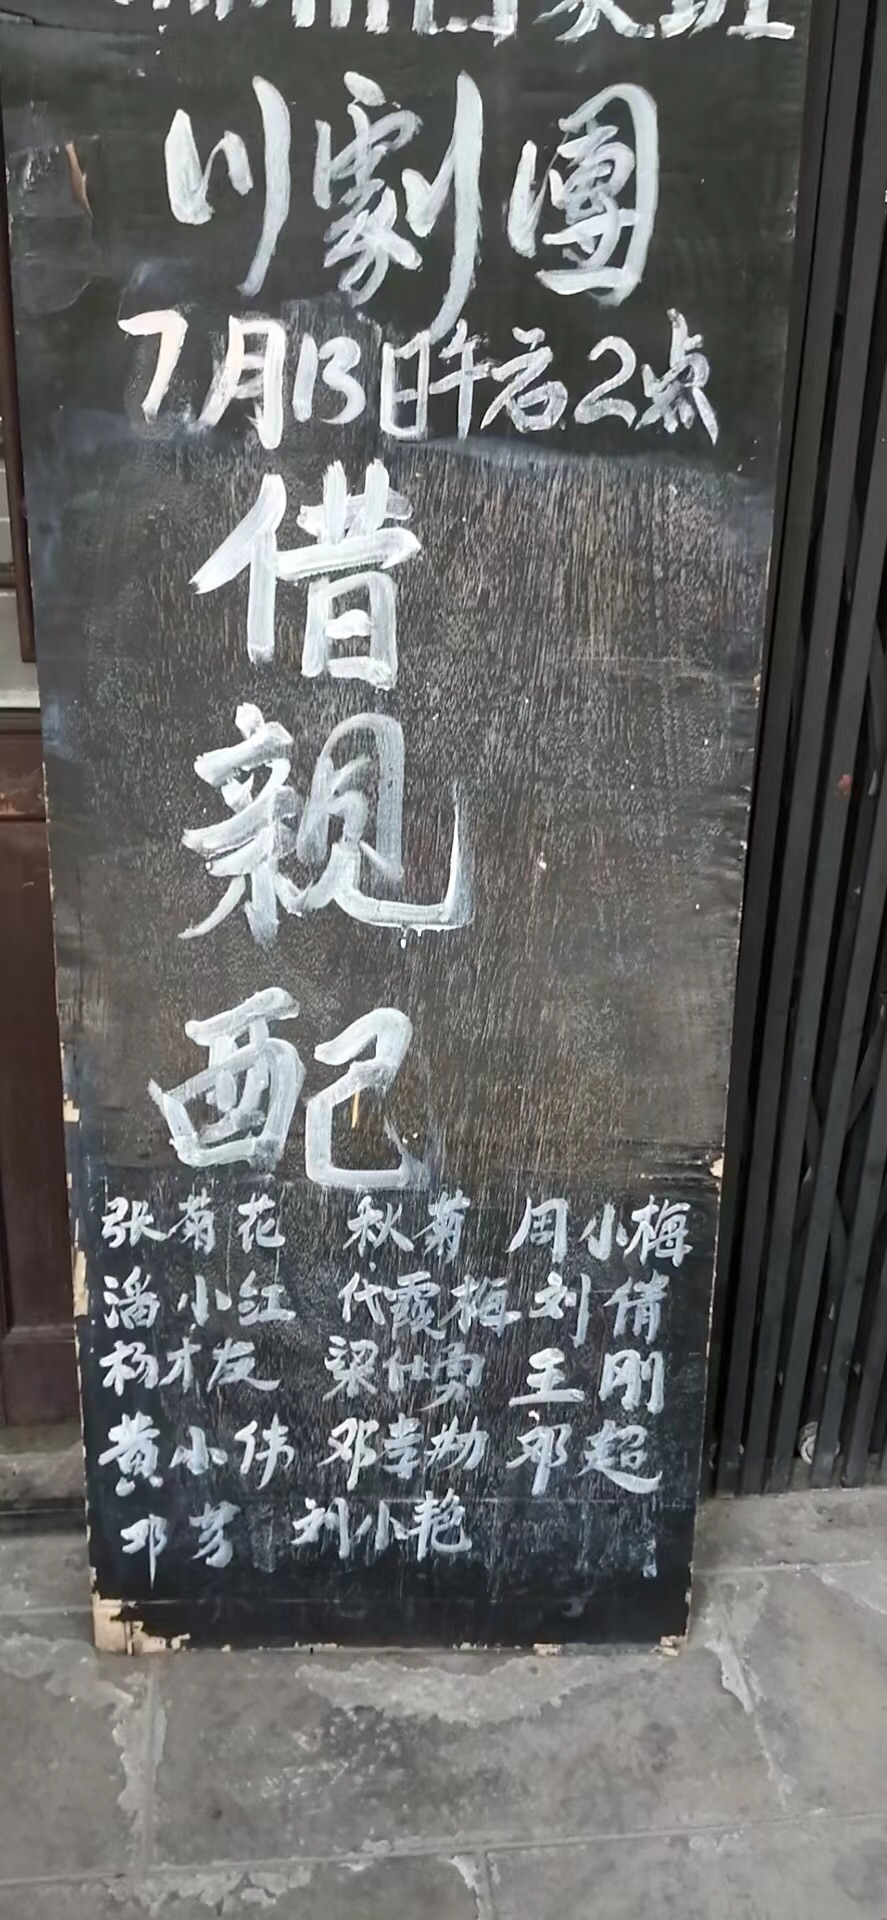 川劇團
7月13日午后2点
借
親
配
张菊花 秋菊 周小梅
潘小红 代霞梅 刘倩
杨才友 梁仕勇 王刚
黄小伟 邓孝劝 邓超
邓芳 刘小艳